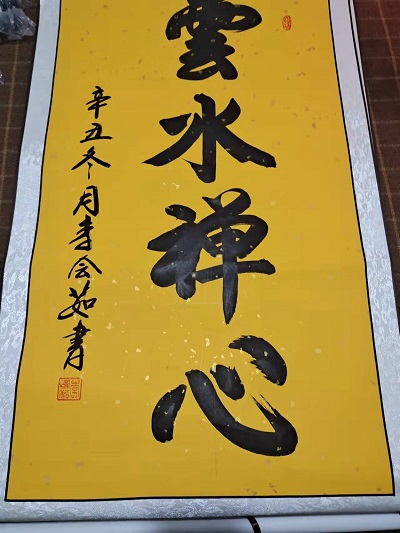 雲水禅心
辛丑冬月李会茹書